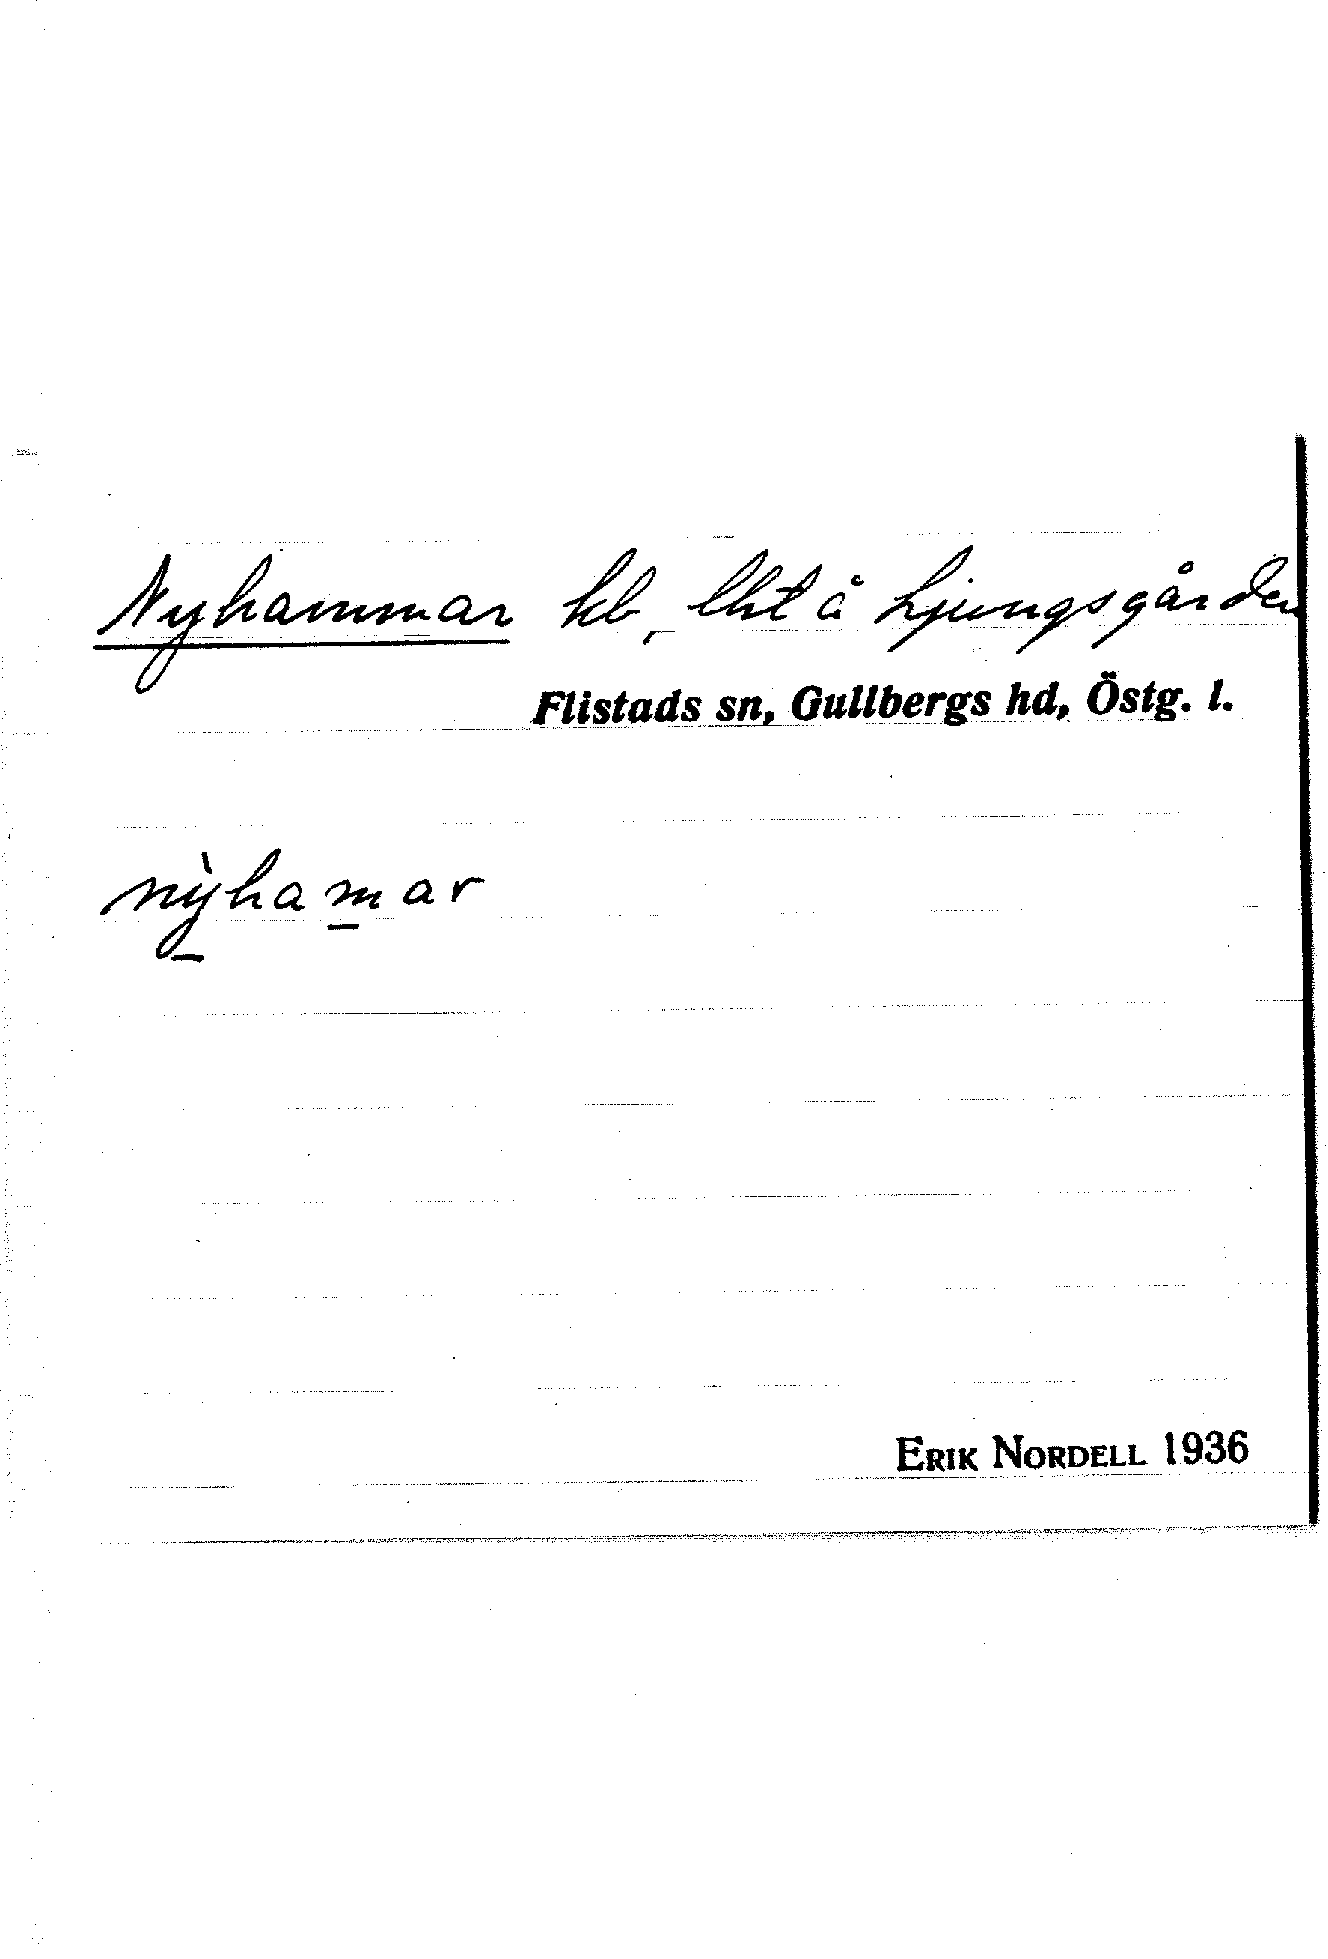 Nyhammar hb, lht å Ljungsgården
Flistads sn, Gullbergs hd, Östg. l.
nỳhamar
ERIK NORDELL 1936